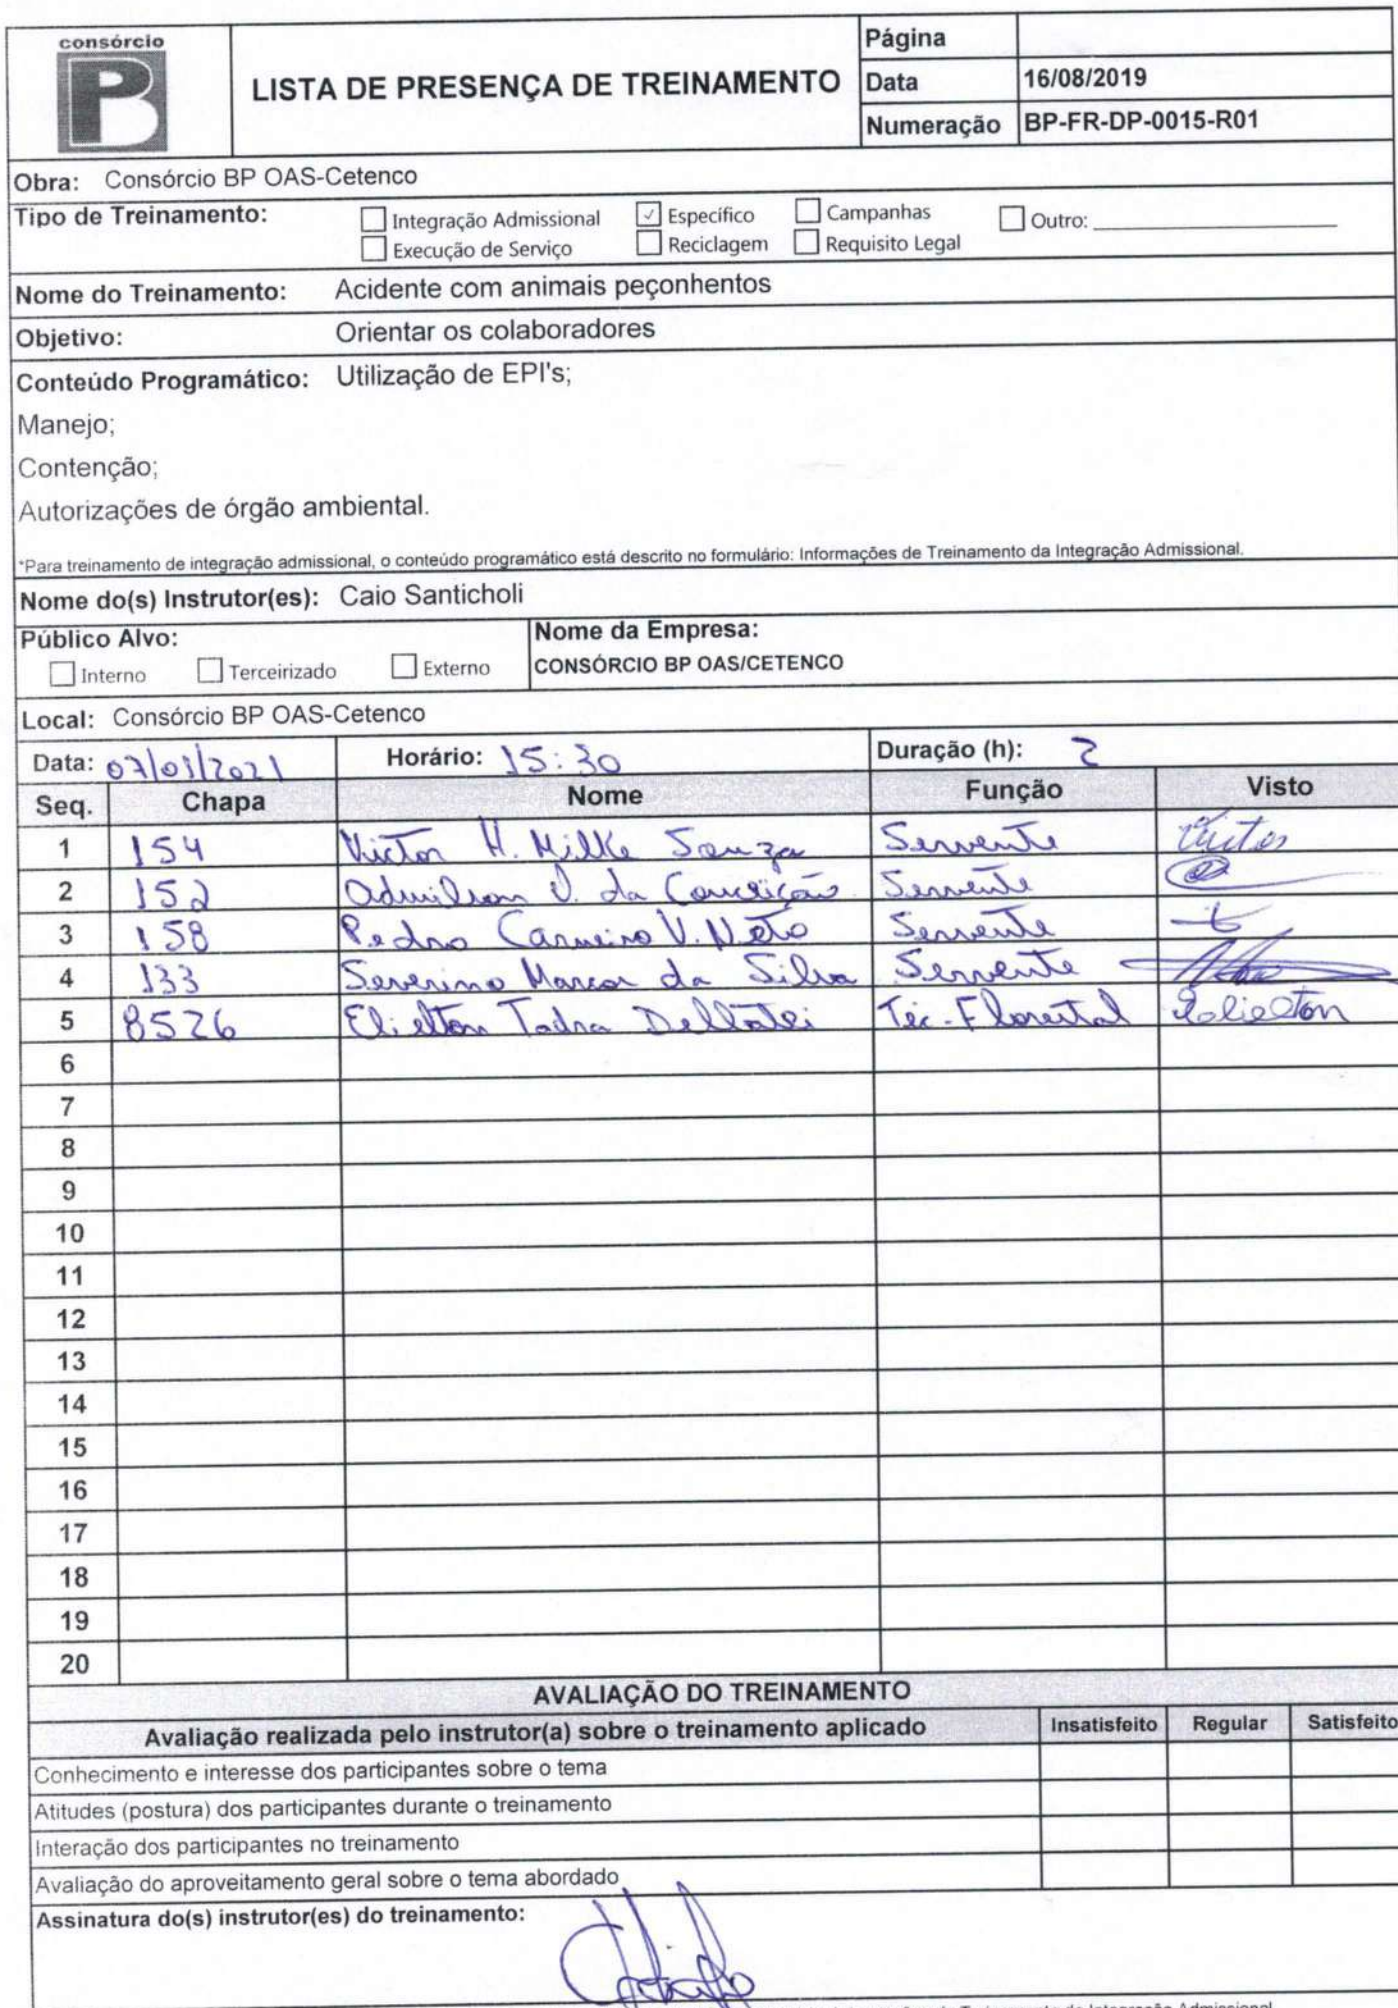 consórcio
LISTA DE PRESENÇA DE TREINAMENTO
Página
Data 16/08/2019
Numeração BP-FR-DP-0015-R01
Obra: Consórcio BP OAS-Cetenco
Tipo de Treinamento:
Integração Admissional Específico Campanhas Outro:
Execução de Serviço Reciclagem Requisito Legal
Nome do Treinamento: Acidente com animais peçonhentos
Objetivo: Orientar os colaboradores
Conteúdo Programático: Utilização de EPI's;
Manejo;
Contenção;
Autorizações de órgão ambiental.
*Para treinamento de integração admissional, o conteúdo programático está descrito no formulário: Informações de Treinamento da Integração Admissional.
Nome do(s) Instrutor(es): Caio Santicholi
Público Alvo: Nome da Empresa:
Interno Terceirizado Externo CONSÓRCIO BP OAS/CETENCO
Local: Consórcio BP OAS-Cetenco
Data: Horário: 15:30 Duração (h): 2
Seq. Chapa Nome Função Visto
1 154 Victor H. Milke Souza Servente Victor
2 152 Admilson V. da Conceição Servente
3 158 Pedro Carneiro V. Neto Servente
4 133 Severino Marcos da Silva Servente
5 8526 Elielton Tadra Téc. Florestal Elielton
6
7
8
9
10
11
12
13
14
15
16
17
18
19
20
AVALIAÇÃO DO TREINAMENTO
Avaliação realizada pelo instrutor(a) sobre o treinamento aplicado Insatisfeito Regular Satisfeito
Conhecimento e interesse dos participantes sobre o tema
Atitudes (postura) dos participantes durante o treinamento
Interação dos participantes no treinamento
Avaliação do aproveitamento geral sobre o tema abordado
Assinatura do(s) instrutor(es) do treinamento: